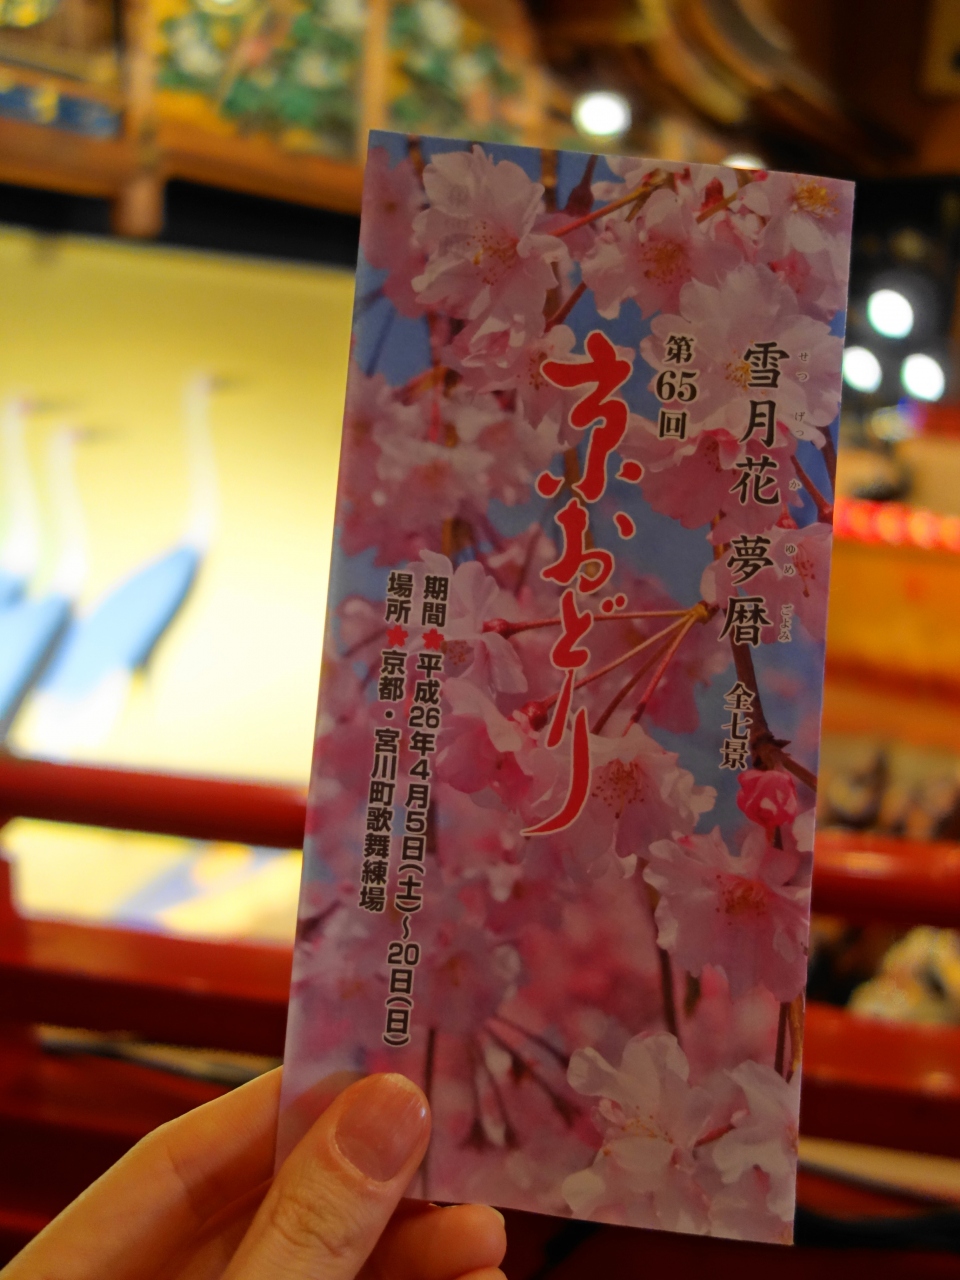 雪月花 夢暦 全七景
せつ げっ か ゆめ ごよみ
第65回
京おどり
期間 平成26年4月5日(土)〜20日(日)
場所 京都・宮川町歌舞練場